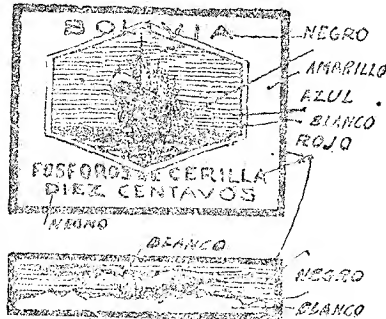 BOLIVIA
NEGRO
AMARILLO
AZUL
BLANCO
ROJO
FOSFOROS DE CERILLA
DIEZ CENTAVOS
NEGRO
BLANCO
NEGRO
BLANCO